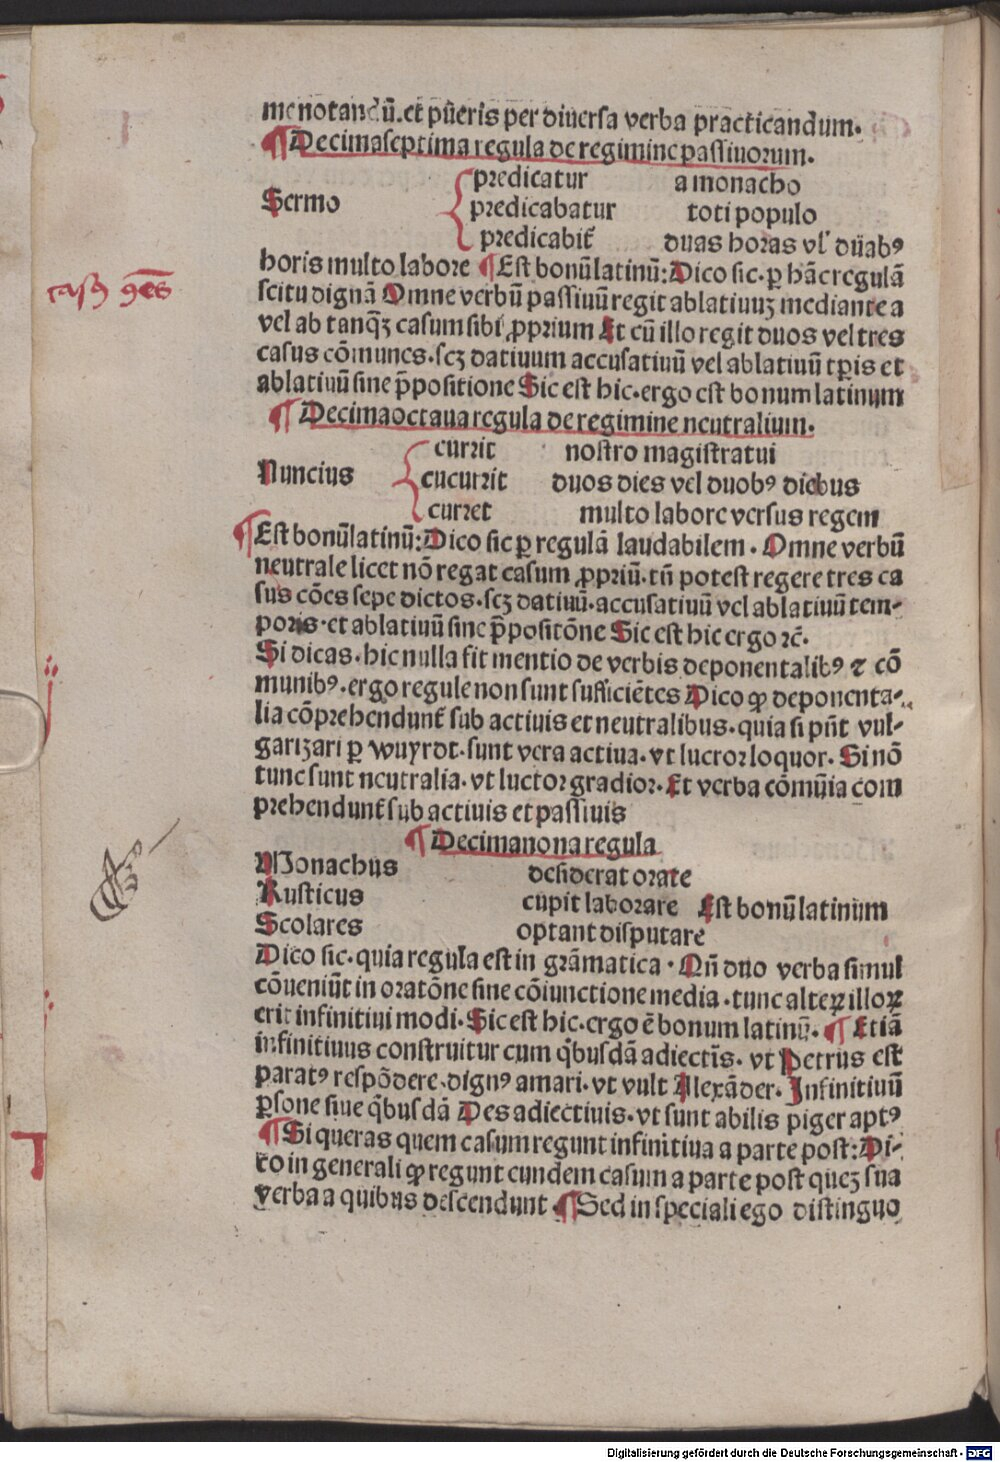 me notandū.et pūeris per diuersa verba practicandum.
¶Decimaseptima regula de regimine passiuorum.
predicatur a monacho
Sermo predicabatur toti populo
predicabit̄ duas horas vl' duab⁹
horis multo labore ¶Est bonū latinū: Dico sic. ꝑ hāc regulā
scitu dignā Omne verbū passiuū regit ablatiuuꝫ mediante a
vel ab tanq̄ꝫ casum sibi ꝓprium Et cū illo regit duos vel tres
casus cōmunes.scꝫ datiuum accusatiuū vel ablatiuū tꝑis et
ablatiuū sine p̄positione Sic est hic.ergo est bonum latinum
¶Decimaoctaua regula de regimine neutralium.
currit nostro magistratui
Nuncius cucurrit duos dies vel duob⁹ diebus
curret multo labore versus regem
¶Est bonū latinū: Dico sic ꝑ regulā laudabilem. Omne verbū
neutrale licet nō regat casum ꝓpriū. tn̄ potest regere tres ca
sus cōes sepe dictos.scꝫ datiuū.accusatiuū vel ablatiuū tem-
poris.et ablatiuū sine p̄positōne Sic est hic ergo rc̄.
Si dicas.hic nulla fit mentio de verbis deponentalib⁹ ⁊ cō
munib⁹.ergo regule non sunt sufficiētes Dico ꝙ deponenta-
lia cōprehendunt̄ sub actiuis et neutralibus.quia si pn̄t vul-
garizari ꝑ wuyrdt.sunt vera actiua.vt lucror loquor. Si nō
tunc sunt neutralia.vt luctor gradior. Et verba cōmūia com
prehendunt̄ sub actiuis et passiuis
¶Decimanona regula
Monachus desiderat orare
Rusticus cupit laborare Est bonū latinum
Scolares optant disputare
Dico sic.quia regula est in grāmatica. Qn̄ duo verba simul
cōueniūt in oratōne sine cōiunctione media.tunc alteꝝ illoꝝ
erit infinitiui modi. Sic est hic.ergo ē bonum latinū. ¶Etiā
infinitiuus construitur cum q̄busdā adiectīs. vt Petrus est
parat⁹ respōdere.dign⁹ amari.vt vult Alexāder. Infinitiuū
ꝑsone siue q̄busdā Des adiectiuis.vt sunt abilis piger apt⁹
¶Si queras quem casum regunt infinitiua a parte post: Di-
co in generali ꝙ regunt eundem casum a parte post queꝫ sua
verba a quibus descendunt. ¶Sed in speciali ego distinguo
casꝰ ꝯ̄es
Digitalisierung gefördert durch die Deutsche Forschungsgemeinschaft - DFG